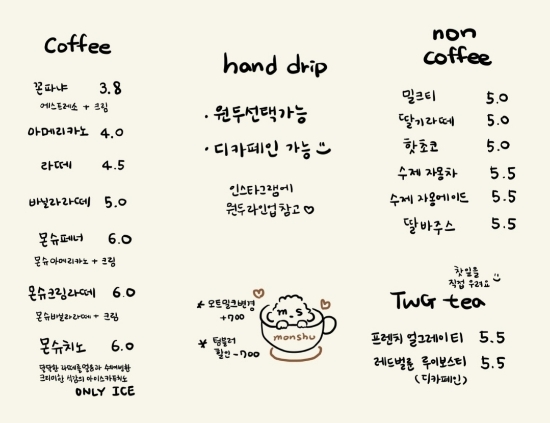 Coffee
꼰파냐 3.8
에스프레소 + 크림
아메리카노 4.0
라떼 4.5
바닐라라떼 5.0
몬슈페너 6.0
몬슈아메리카노 + 크림
몬슈크림라떼 6.0
몬슈바닐라라떼 + 크림
몬슈치노 6.0
크리미한 식감의 아이스카푸치노
ONLY ICE
hand drip
· 원두선택가능
· 디카페인 가능
인스타그램에
원두라인업 참고 ♡
* 오트밀크변경
+700
* 텀블러
할인 -700
m_s
monshu
non
coffee
밀크티 5.0
딸기라떼 5.0
핫초코 5.0
수제 자몽차 5.5
수제 자몽에이드 5.5
딸바주스 5.5
찻잎을
직접 우려요
TWG tea
프렌치 얼그레이티 5.5
레드벌룬 루이보스티 5.5
(디카페인)